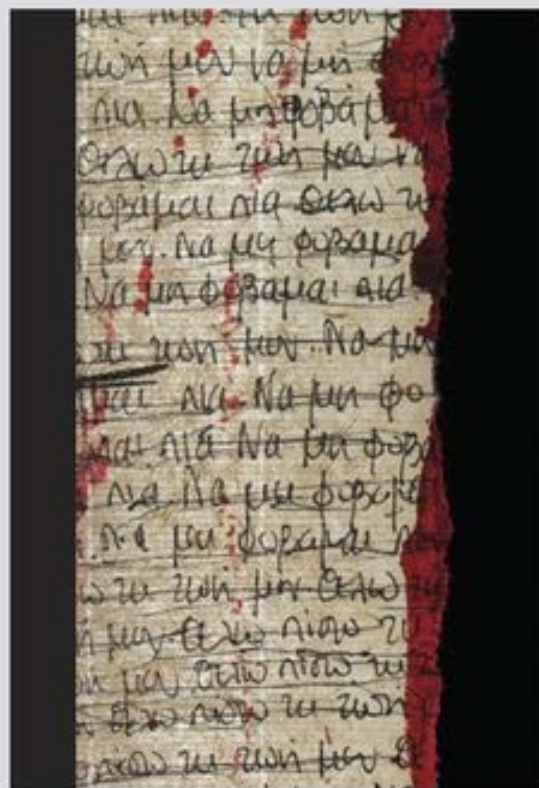 πια. τη ζωή μου
ζωή μου να μη φοβα
πια. Να μη φοβάμαι
Θέλω τη ζωή μου να
φοβάμαι πια Θέλω τη
μου. Να μη φοβάμαι
Να μη φοβάμαι πια.
τη ζωή μου. Να μη
μαι πια. Να μη φο
μαι πια Να μη φοβα
πια. Να μη φοβάμαι
να μη φοβάμαι
ω τη ζωή μου Θέλω τη
μου Θέλω πίσω τη
μου. Θέλω πίσω τη ζ
Θέλω πίσω τη ζωή μ
πίσω τη ζωή μου Θέ